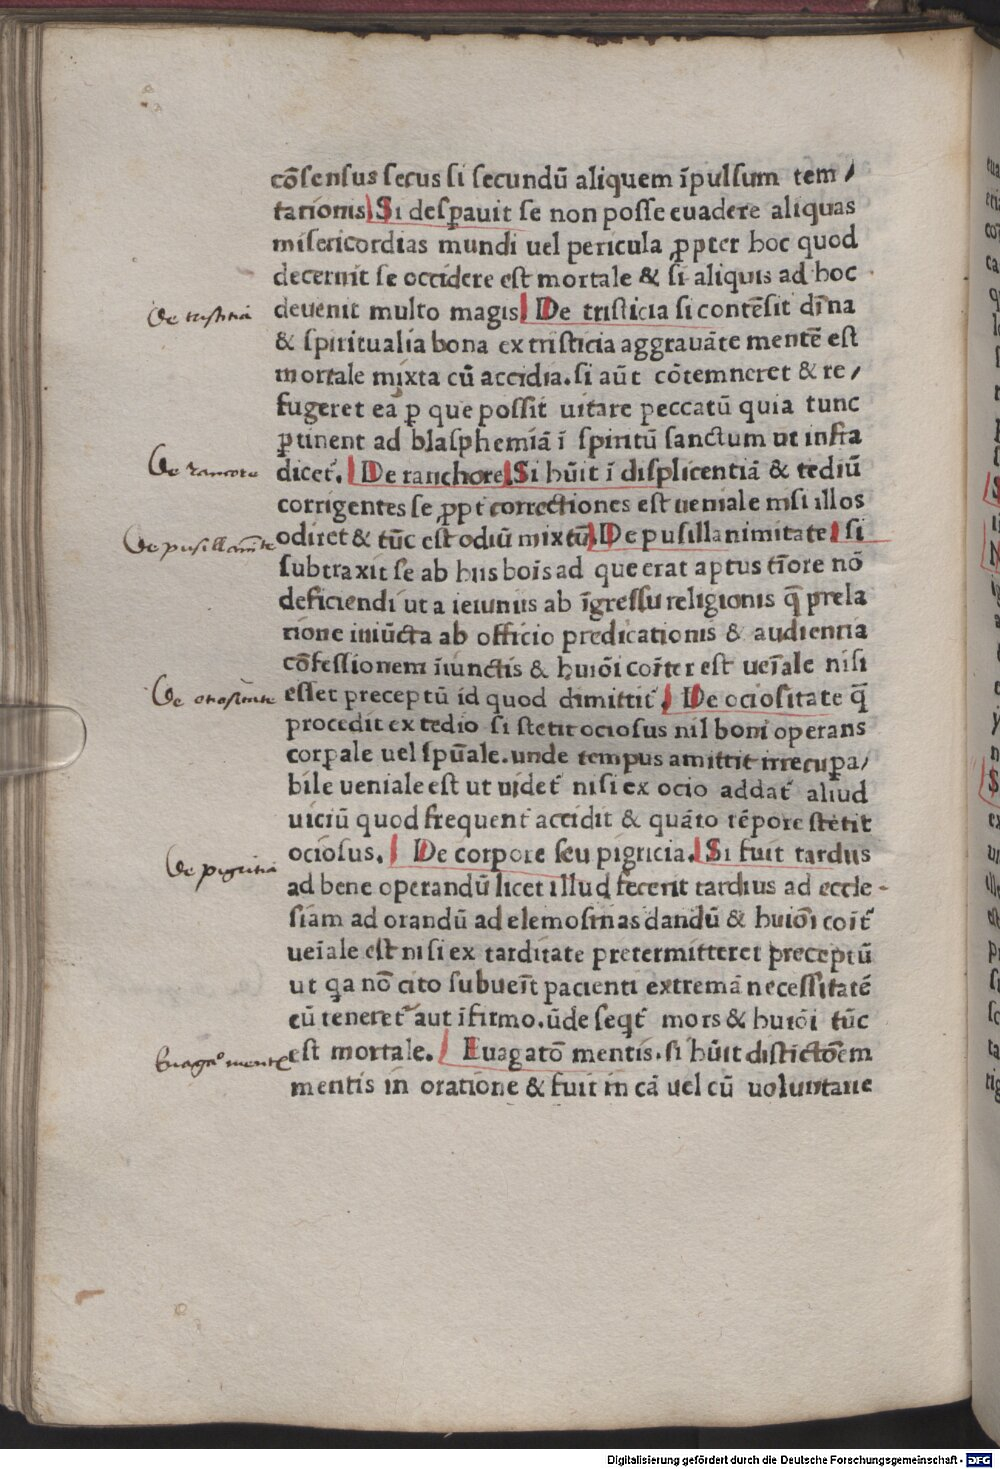 cōsensus secus si secundū aliquem īpulsum tem/
tationis Si desꝑauit se non posse euadere aliquas
misericordias mundi uel pericula ꝓpter hoc quod
decernit se occidere est mortale & si aliquis ad hoc
deuenit multo magis De tristicia si contēsit diīna
& spiritualia bona ex tristicia aggrauāte mentē est
mortale mixta cū accidia. si aūt cōtemneret & re/
fugeret ea ꝑ que possit uitare peccatū quia tunc
ꝑtinent ad blasphemiā ī spiritū sanctum ut infra
dicet̄. De ranchore Si hūit ī displicentiā & tediū
corrigentes se ꝓpt correctiones est ueniale nisi illos
odiret & tūc est odiū mixtū. De pusillanimitate si
subtraxit se ab hiis boīs ad que erat aptus tīore nō
deficiendi ut a ieiuniis ab īgressu religionis q̄ prela
tione iniūcta ab officio predicationis & audientia
cōfessionem īiunctis & huiōi coīter est ueīale nisi
esset preceptū id quod dimittit̄. De ociositate q̄
procedit ex tedio si stetit ociosus nil boni operans
corꝑale uel spūale. unde tempus amittit irrecuꝑa/
bile ueniale est ut uidet̄ nisi ex ocio addat̄ aliud
uiciū quod frequent̄ accidit & quāto tēpore stetit
ociosus. De corpore seu pigricia. Si fuit tardus
ad bene operandū licet illud fecerit tardius ad eccle-
siam ad orandū ad elemosinas dandū & huiōi coīt̄
ueīale est nisi ex tarditate pretermitteret preceptū
ut qa nō cito subueīt pacienti extremā necessitatē
cū teneret̄ aut īfirmo. ūde seqt̄ mors & huiōi tūc
est mortale. Euagatō mentis. si hūit distictōem
mentis in oratione & fuit in cā uel cū uoluntarie
De tristitia
De rancore
De pusillaīmitate
De otiositate
De pigritia
Euagatō mentis
Digitalisierung gefördert durch die Deutsche Forschungsgemeinschaft - DFG